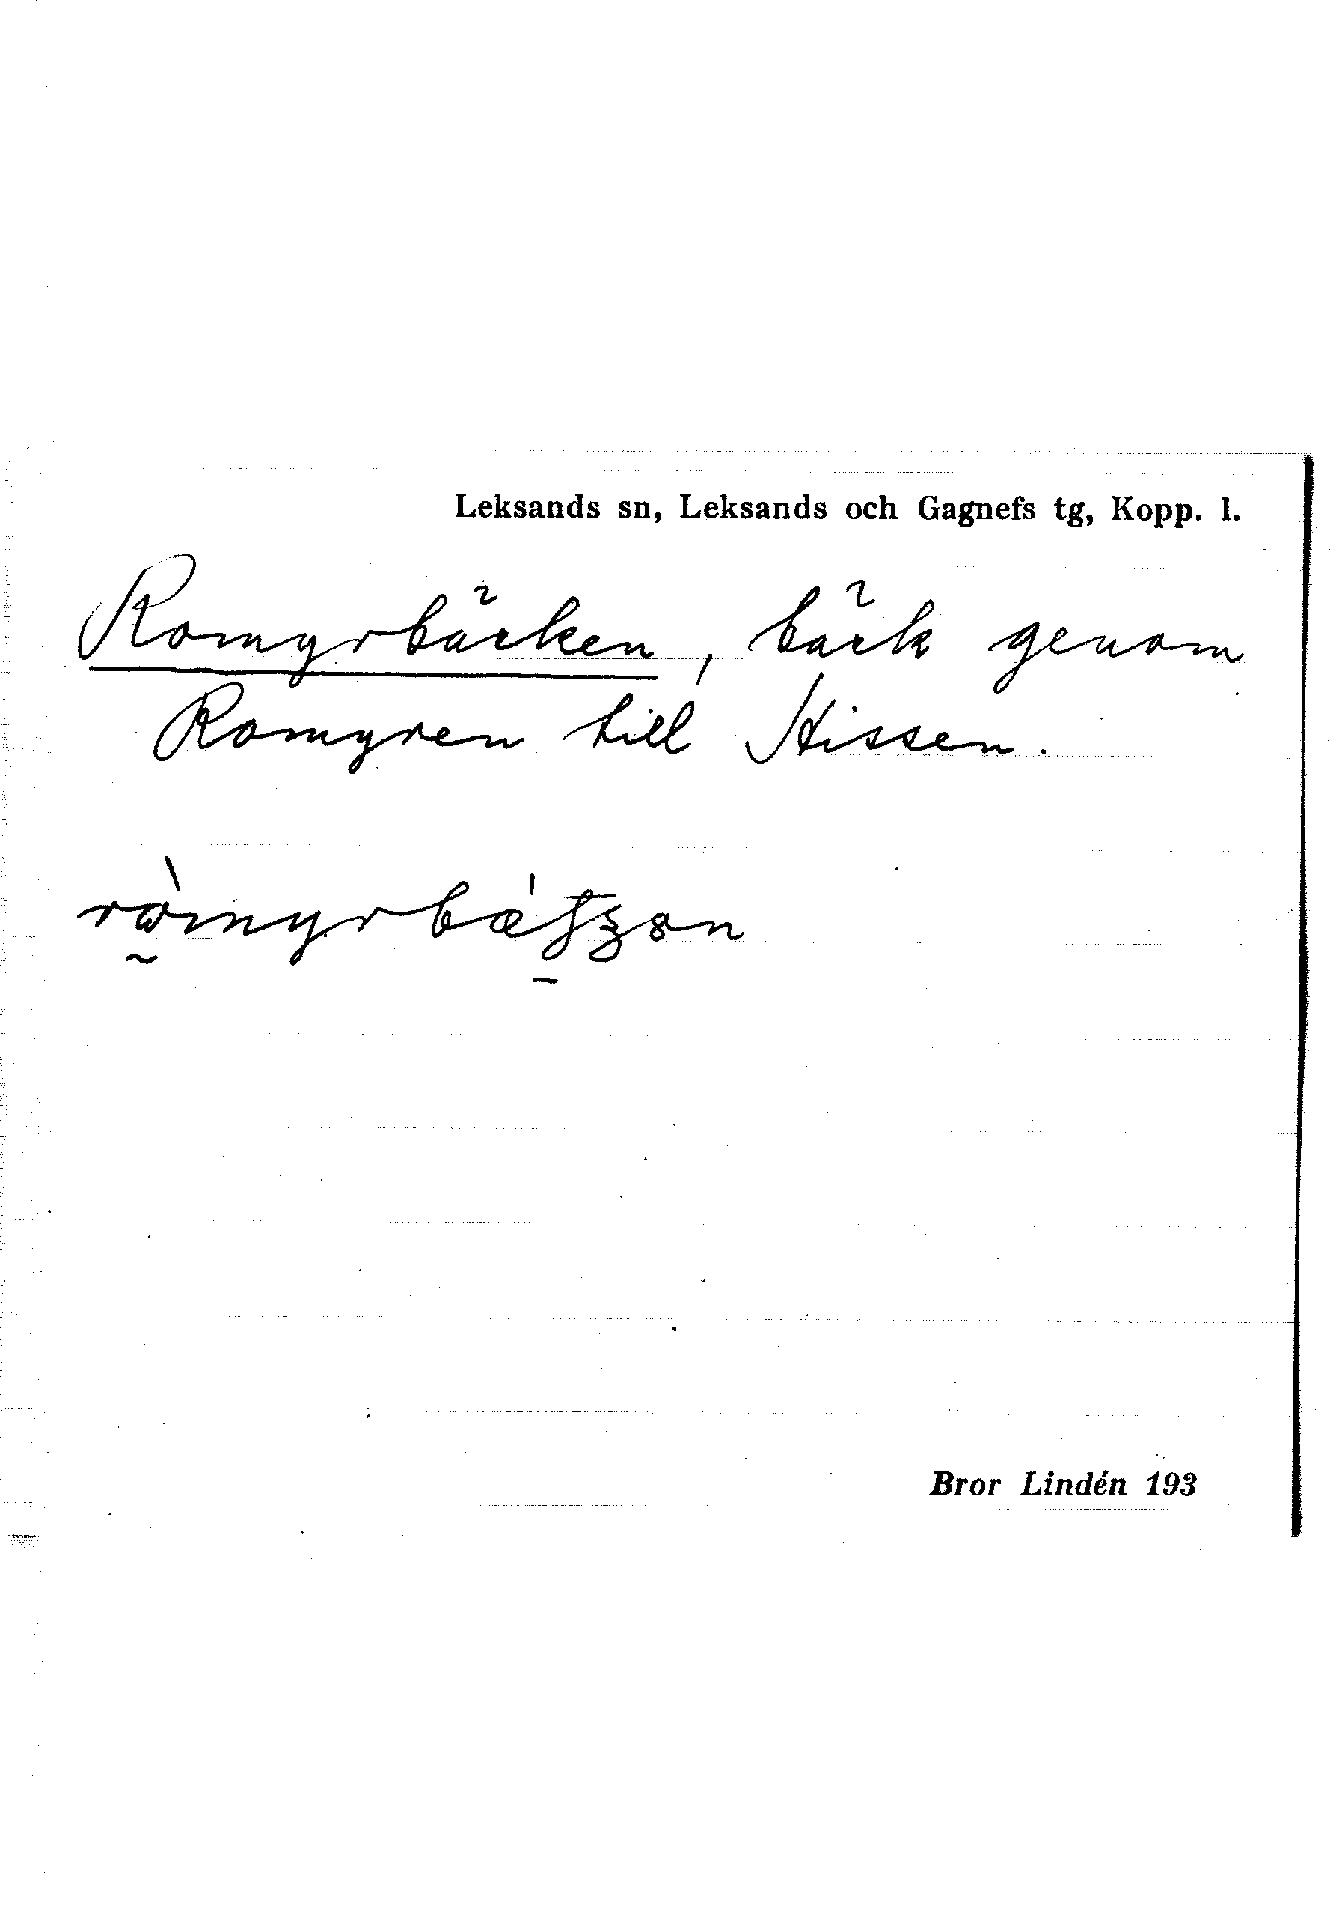 Leksands sn, Leksands och Gagnefs tg, Kopp. l.
Romyrbäcken, bäck genom
Romyren till Hissen.
Bror Lindén 193